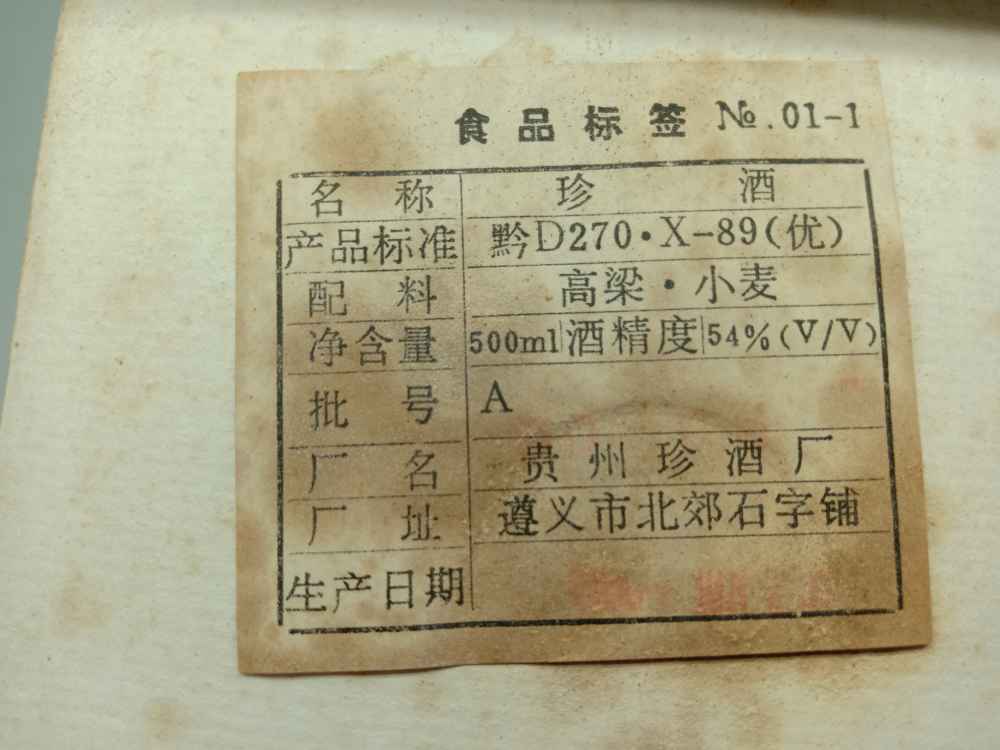 食品标签 №.01-1
名称 珍酒
产品标准 黔D270·X-89(优)
配料 高梁·小麦
净含量 500ml 酒精度 54%(V/V)
批号 A
厂名 贵州珍酒厂
厂址 遵义市北郊石字铺
生产日期